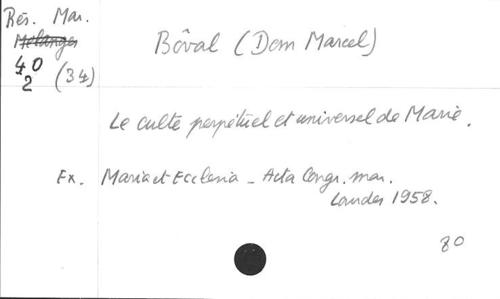 Rés. Mar.
Mélanges
40
2
(34)
Bôval (Dom Marcel)
Le culte perpétuel et universel de Marie.
Ex. Maria et Ecclesia - Acta Congr. mar.
Lourdes 1958.
80